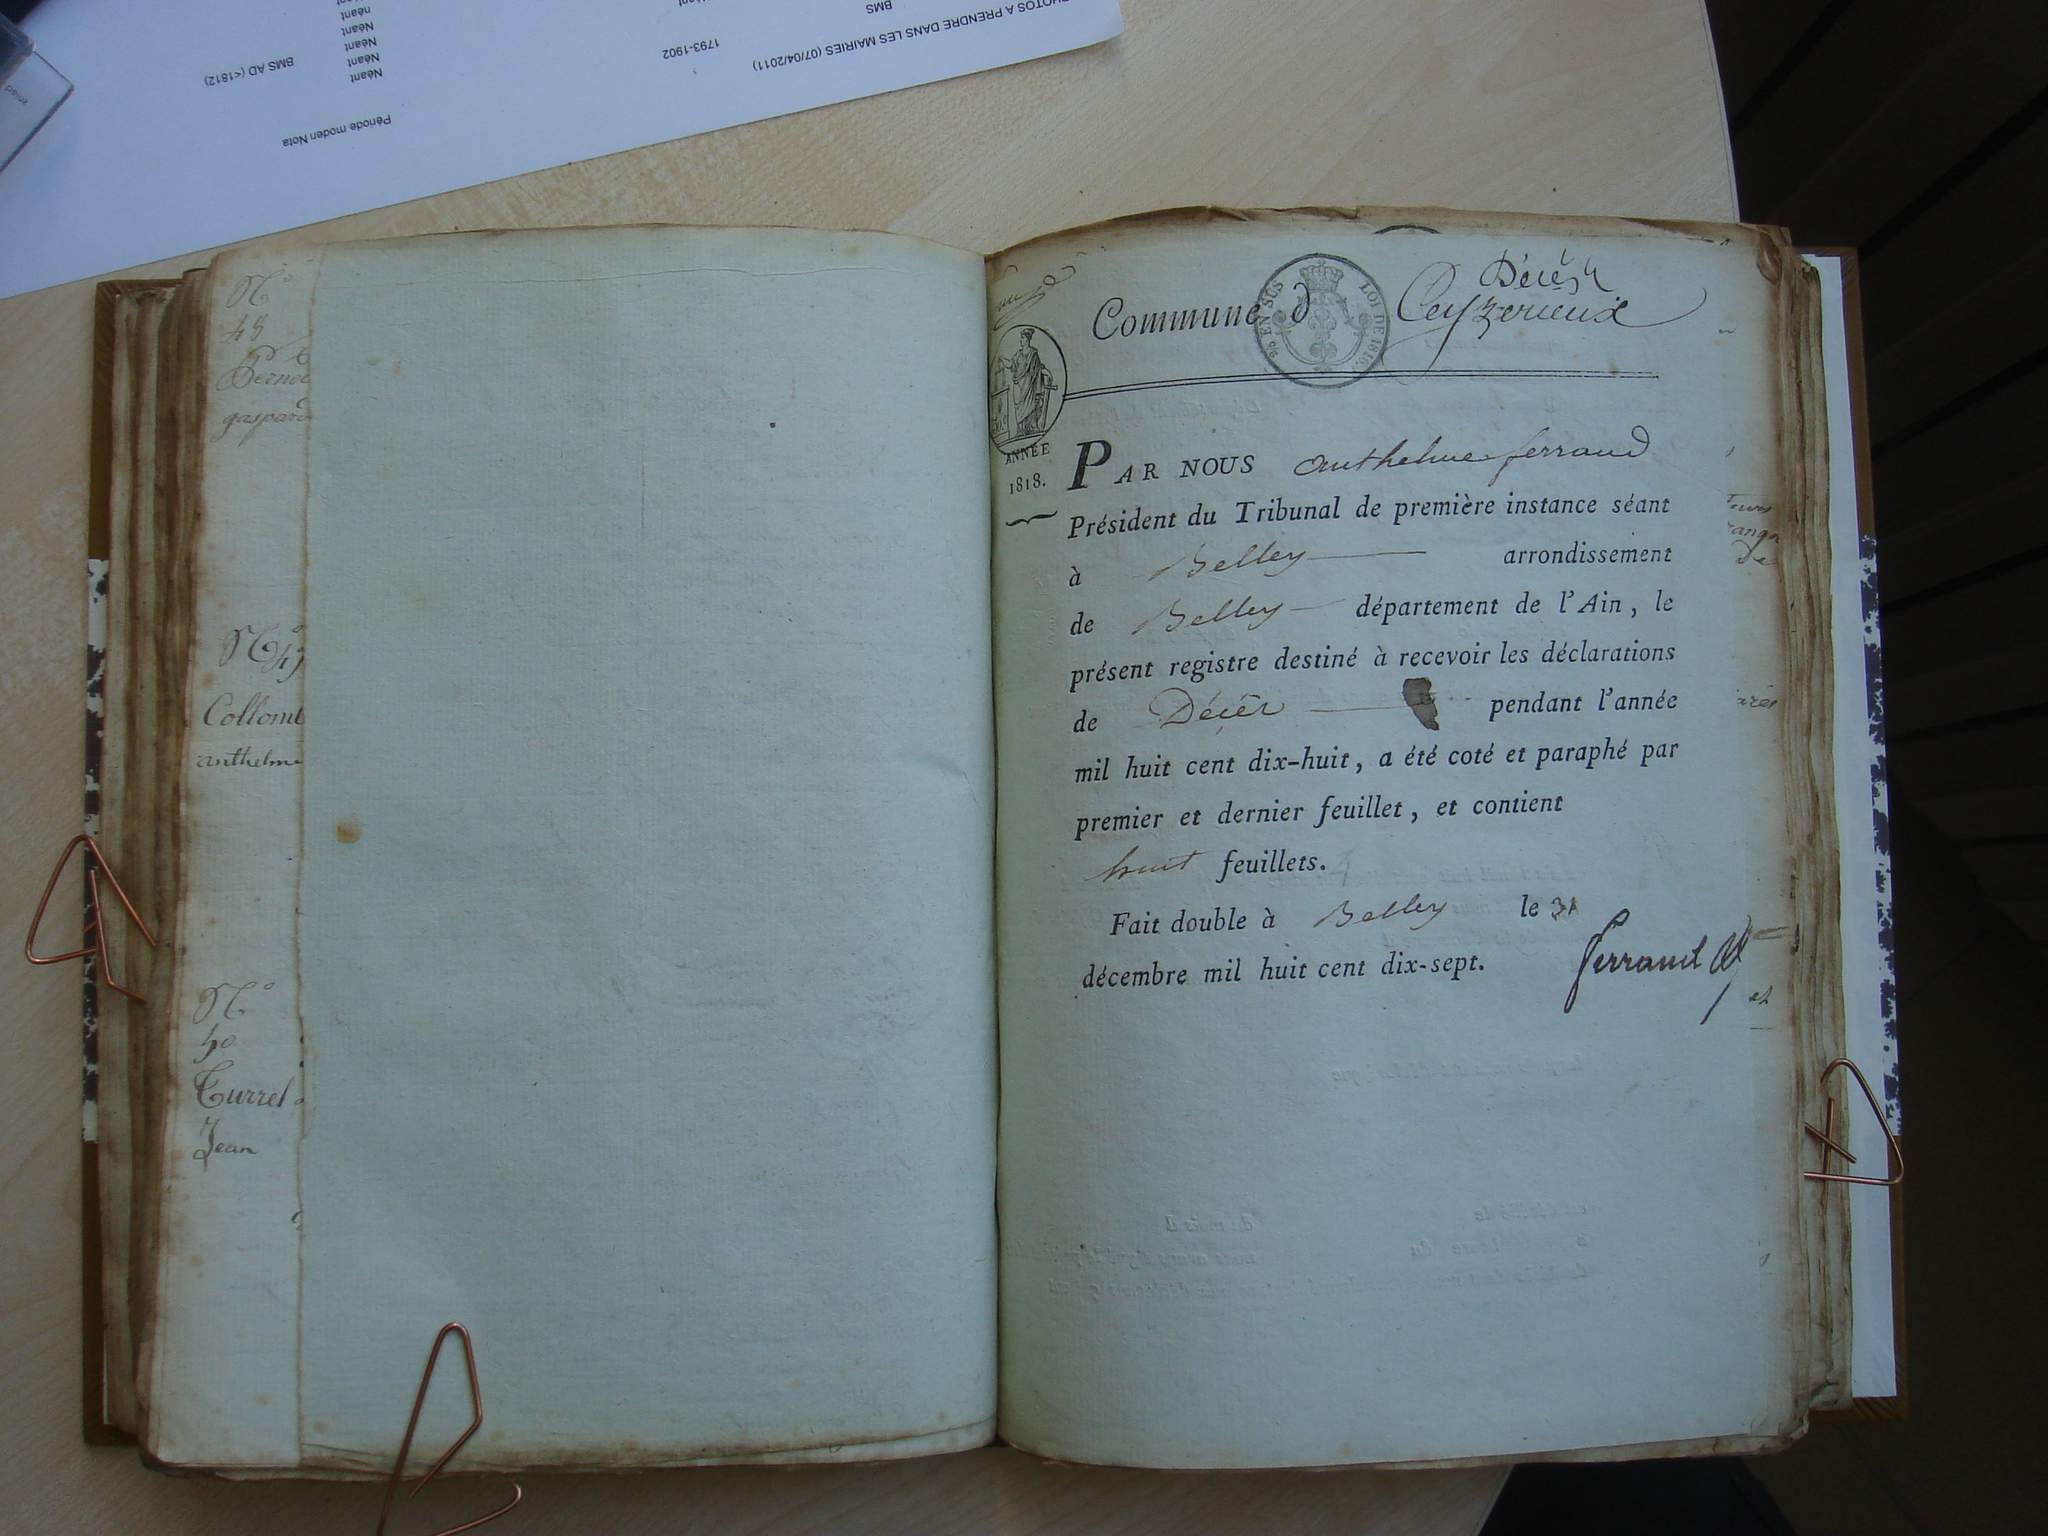 PHOTOS A PRENDRE DANS LES MAIRIES (07/04/2011)
BMS
1793-1902
Néant
Néant
Néant
néant
Néant
BMS AD (<1812)
Période moden Nota
N°
48
Pernod
gaspard
N° 49
Collomb
anthelme
N°
50
Turrel
Jean
Décès
Commune d Ceyzerieux
25 EN SUS LOI DE 1816.
ANNÉE
1818.
PAR NOUS anthelme ferrand
Président du Tribunal de première instance séant
à Belley arrondissement
de Belley département de l'Ain, le
présent registre destiné à recevoir les déclarations
de Décès pendant l'année
mil huit cent dix-huit, a été coté et paraphé par
premier et dernier feuillet, et contient
huit feuillets.
Fait double à Belley le 31
décembre mil huit cent dix-sept.
ferrand